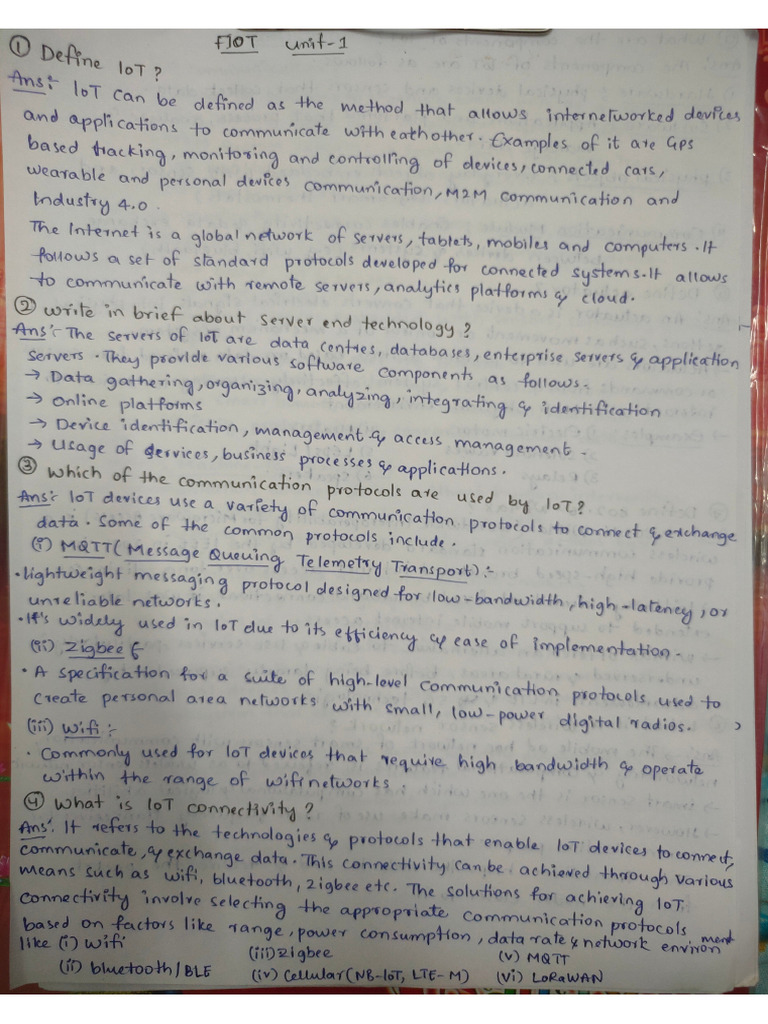 FIOT Unit-1
① Define IoT ?
Ans:- IoT can be defined as the method that allows internetworked devices
and applications to communicate with eathother. Examples of it are GPS
based tracking, monitoring and controlling of devices, connected cars,
wearable and personal devices communication, M2M communication and
Industry 4.0.
The Internet is a global network of servers, tablets, mobiles and computers. It
follows a set of standard protocols developed for connected systems. It allows
to communicate with remote servers, analytics platforms & cloud.
② Write in brief about server end technology ?
Ans:- The servers of IoT are data centres, databases, enterprise servers & application
servers. They provide various software components as follows-
→ Data gathering, organizing, analyzing, integrating & identification
→ Online platforms
→ Device identification, management & access management.
→ Usage of services, business processes & applications.
③ Which of the communication protocols are used by IoT?
Ans:- IoT devices use a variety of communication protocols to connect & exchange
data. Some of the common protocols include.
(i) MQTT (Message Queuing Telemetry Transport):-
• Lightweight messaging protocol designed for low-bandwidth, high-latency, or
unreliable networks.
• It's widely used in IoT due to its efficiency & ease of implementation.
(ii) Zigbee
• A specification for a suite of high-level communication protocols used to
create personal area networks with small, low-power digital radios.
(iii) Wifi :-
• Commonly used for IoT devices that require high bandwidth & operate
within the range of wifi networks.
④ What is IoT connectivity?
Ans:- It refers to the technologies & protocols that enable IoT devices to connect,
communicate, & exchange data. This connectivity can be achieved through various
means such as wifi, bluetooth, zigbee etc. The solutions for achieving IoT
connectivity involve selecting the appropriate communication protocols
based on factors like range, power consumption, data rate & network environment
like (i) Wifi (iii) Zigbee (v) MQTT
(ii) bluetooth/BLE (iv) Cellular (NB-IoT, LTE-M) (vi) LoRaWAN